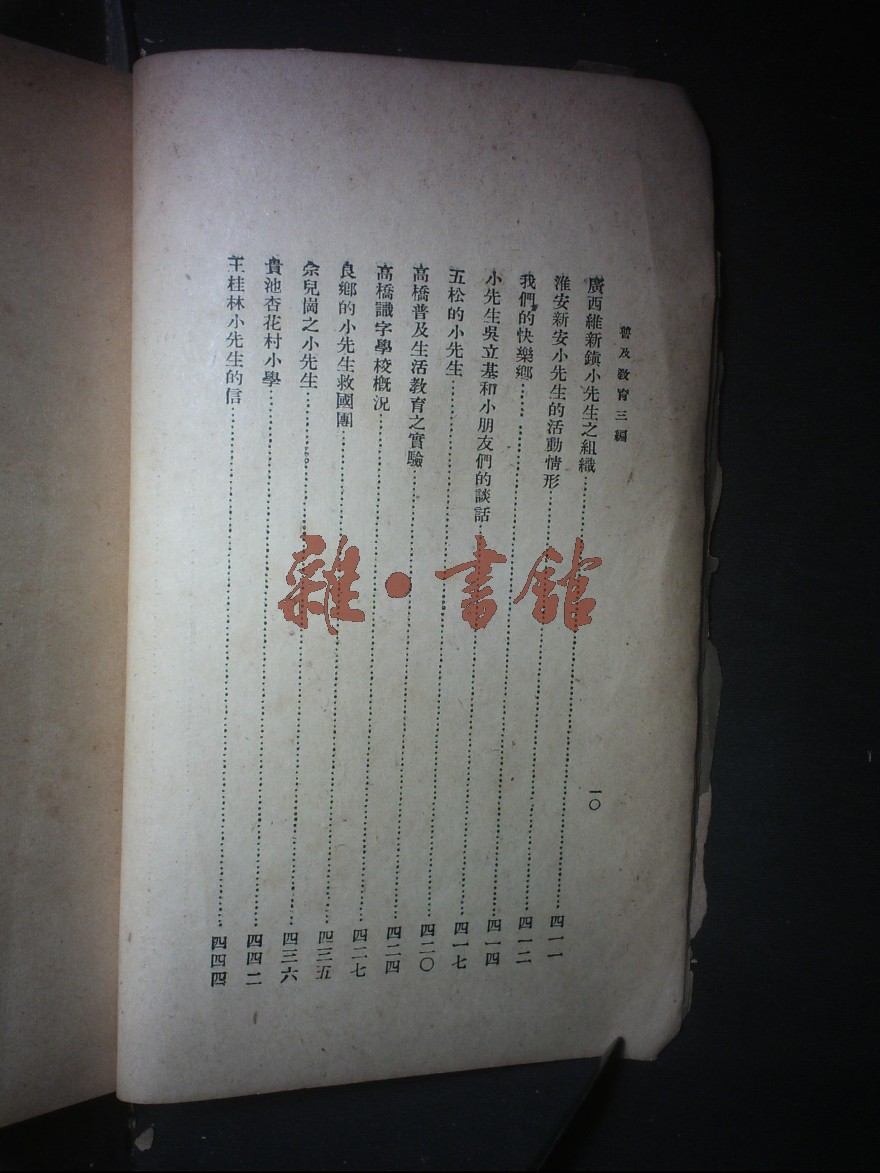 普及教育三編
一〇
廣西維新鎮小先生之組織……四一一
淮安新安小先生的活動情形……四一二
我們的快樂鄉……四一四
小先生吳立基和小朋友們的談話……四一七
五松的小先生……四二〇
高橋普及生活教育之實驗……四二四
高橋識字學校概況……四二七
良鄉的小先生救國團……四三五
佘兒崗之小先生……四三六
貴池杏花村小學……四四二
王桂林小先生的信……四四四
雜·書館